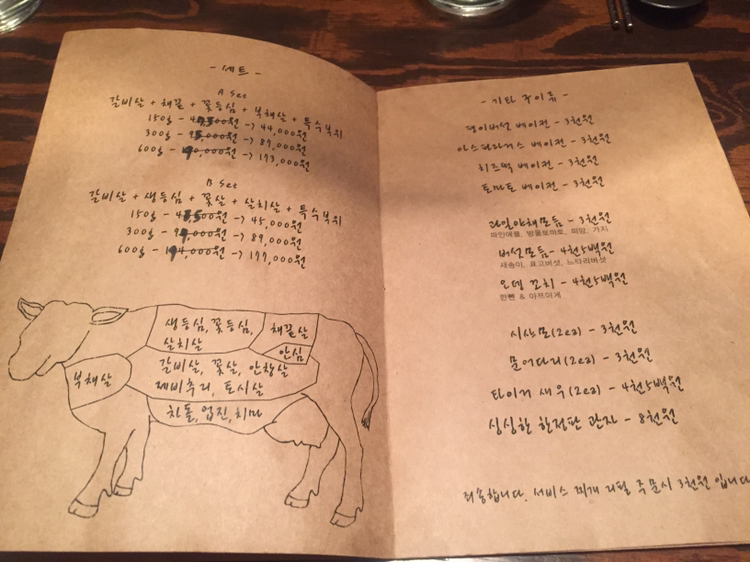 - 세트 -
A Set
갈비살 + 채끝 + 꽃등심 + 부채살 + 특수부위
150g - 원 -> 44,000원
300g - 원 -> 87,000원
600g - 원 -> 173,000원
B Set
갈비살 + 생등심 + 꽃살 + 살치살 + 특수부위
150g - 원 -> 45,000원
300g - 원 -> 89,000원
600g - 원 -> 177,000원
생등심, 꽃등심,
살치살
채끝살
안심
갈비살, 꽃살, 안창살
제비추리, 토시살
부채살
차돌, 업진, 치마
- 기타 구이류 -
팽이버섯 베이컨 - 3천원
아스파라거스 베이컨 - 3천원
치즈떡 베이컨 - 3천원
토마토 베이컨 - 3천원
과일야채모둠 - 3천원
파인애플, 방울토마토, 피망, 가지
버섯모듬 - 4천5백원
새송이, 표고버섯, 느타리버섯
오뎅 꼬치 - 4천5백원
한뻰 & 아쯔아게
시샤모(2ea) - 3천원
문어다리(2ea) - 3천원
타이거 새우(2ea) - 4천5백원
싱싱한 한정판 관자 - 8천원
죄송합니다. 서비스 찌개 리필 주문시 3천원 입니다